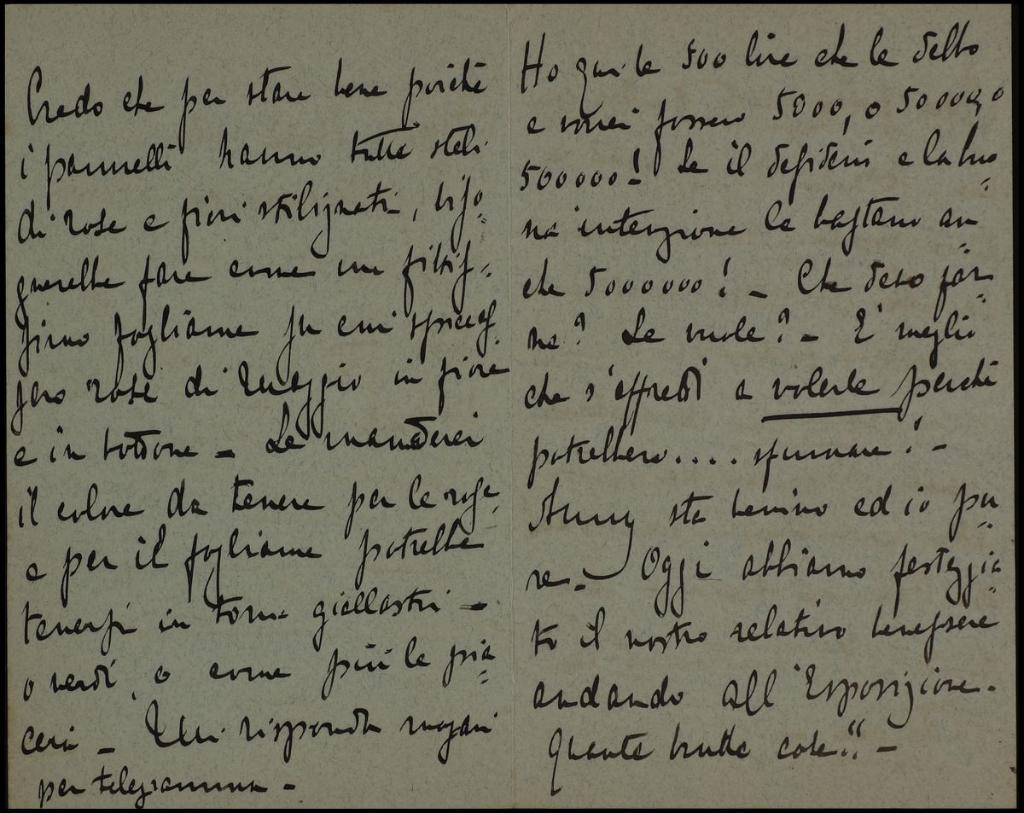 Credo che per stare bene poiché
i pannelli hanno tutte steli
di rose e fiori stilizzati, biso-
gnerebbe fare come un fittis-
simo fogliame su cui spiccas-
sero rose di Maggio in fiore
e in bottone – Le manderei
il colore da tenere per le rose
e per il fogliame potrebbe
tenersi in toni giallastri –
o verdi, o come più le pia-
cerà – Mi risponda magari
per telegramma –
Ho qui le 500 lire che le debbo
e vorrei fossero 5000, o 50000, o
500000! Se il desiderio e la buo-
na intenzione le bastano an-
che 5000000! – Che devo far-
ne? Le vuole? – E' meglio
che s'affretti a volerle perché
potrebbero.... sfumare! –
Anny sta benino ed io pu-
re. – Oggi abbiamo festeggia-
to il nostro relativo benessere
andando all'Esposizione.
Quante brutte cose!! –